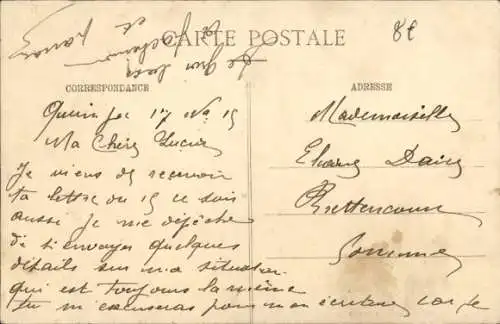 CARTE POSTALE
8€
CORRESPONDANCE
ADRESSE
17 No 15
Ma Chère Lucie
Je viens de recevoir
ta lettre du 15 ce soir
aussi je me dépêche
de t'envoyer quelques
détails sur ma situation
qui est toujours la même
tu m'excuseras pour mon écriture car je
Mademoiselle
Dairy
Bettencourt
Somme